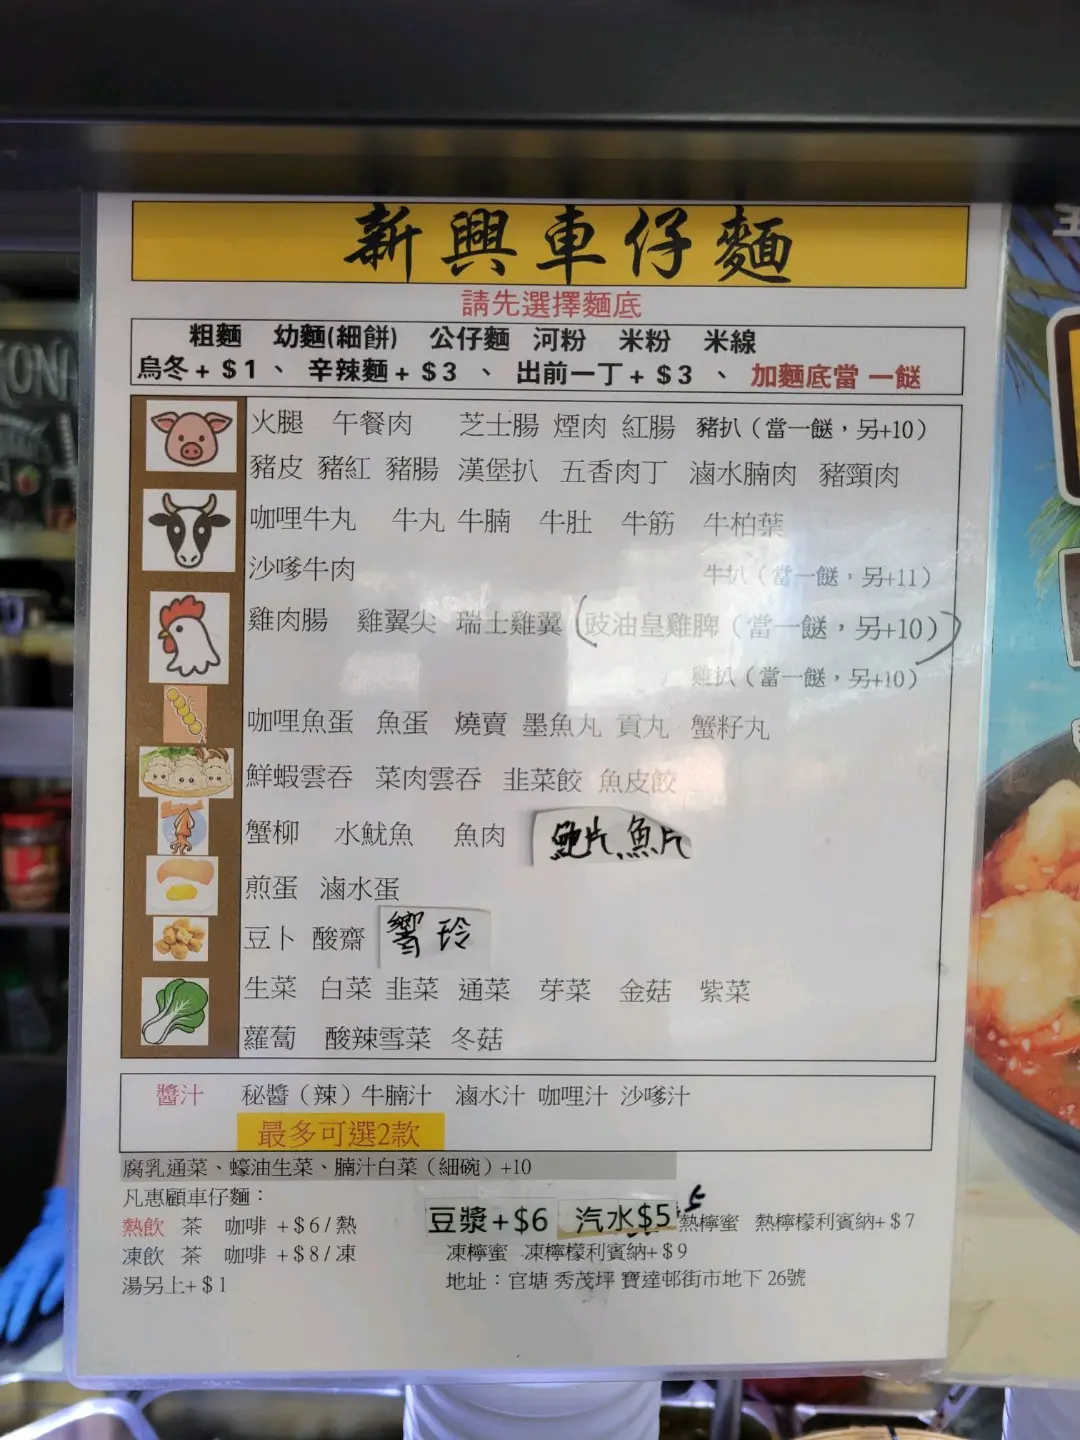 新興車仔麵
請先選擇麵底
粗麵 幼麵(細餅) 公仔麵 河粉 米粉 米線
烏冬+$1、 辛辣麵+$3 、 出前一丁+$3 、 加麵底當 一餸
火腿 午餐肉 芝士腸 煙肉 紅腸 豬扒（當一餸，另+10）
豬皮 豬紅 豬腸 漢堡扒 五香肉丁 滷水腩肉 豬頸肉
咖哩牛丸 牛丸 牛腩 牛肚 牛筋 牛柏葉
沙嗲牛肉 牛扒（當一餸，另+11）
雞肉腸 雞翼尖 瑞士雞翼 (豉油皇雞脾（當一餸，另+10）)
雞扒（當一餸，另+10）
咖哩魚蛋 魚蛋 燒賣 墨魚丸 貢丸 蟹籽丸
鮮蝦雲吞 菜肉雲吞 韭菜餃 魚皮餃
蟹柳 水魷魚 魚肉 鮑片、魚片
煎蛋 滷水蛋
豆卜 酸齋 響玲
生菜 白菜 韭菜 通菜 芽菜 金菇 紫菜
蘿蔔 酸辣雪菜 冬菇
醬汁 秘醬（辣）牛腩汁 滷水汁 咖哩汁 沙嗲汁
最多可選2款
腐乳通菜、蠔油生菜、腩汁白菜（細碗）+10
凡惠顧車仔麵：
熱飲 茶 咖啡 +$6/熱 豆漿+$6 汽水$5 5 熱檸蜜 熱檸檬利賓納+$7
凍飲 茶 咖啡 +$8/凍 凍檸蜜 凍檸檬利賓納+$9
湯另上+$1 地址：官塘 秀茂坪 寶達邨街市地下 26號